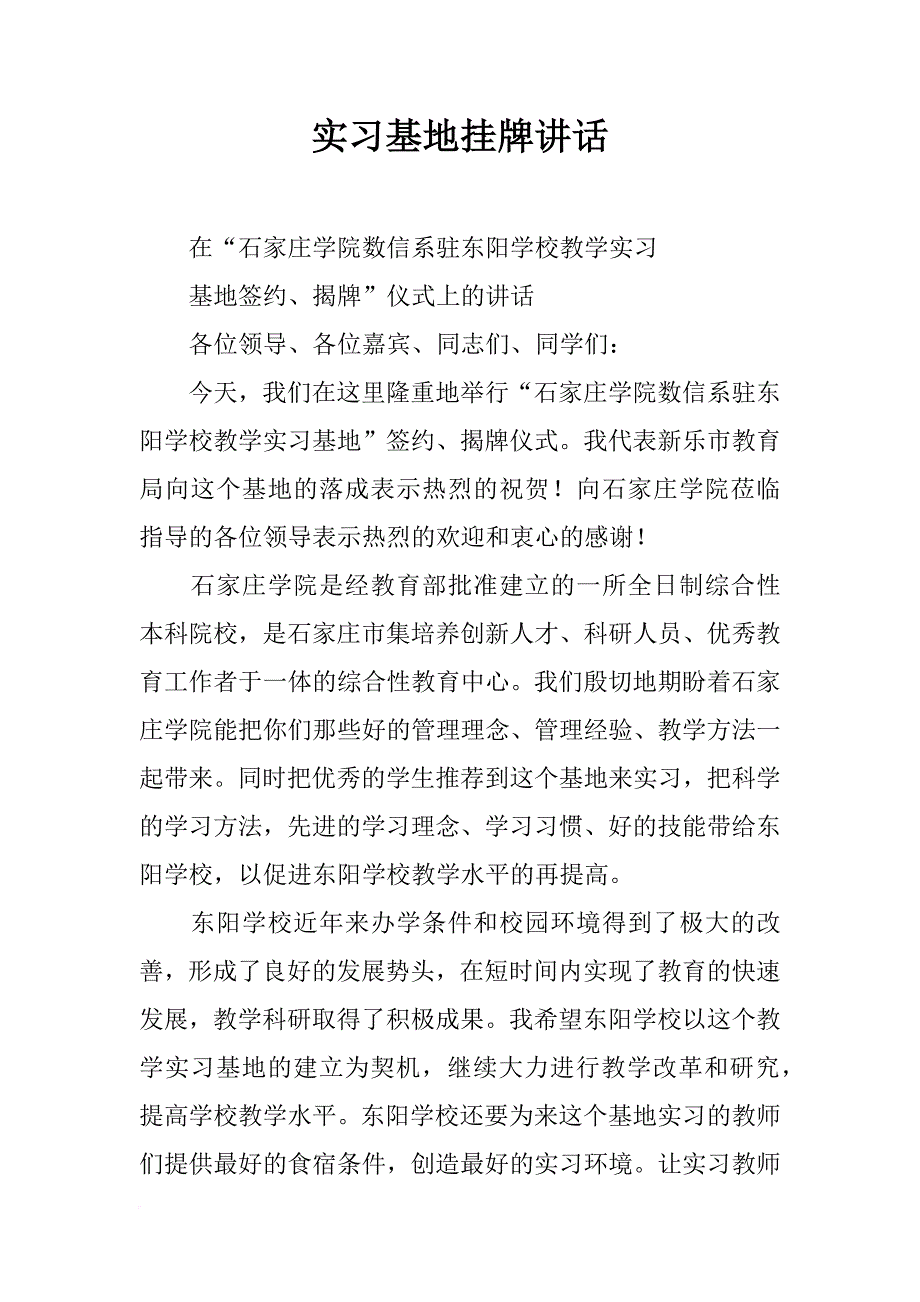 实习基地挂牌讲话
在“石家庄学院数信系驻东阳学校教学实习
基地签约、揭牌”仪式上的讲话
各位领导、各位嘉宾、同志们、同学们：
今天，我们在这里隆重地举行“石家庄学院数信系驻东
阳学校教学实习基地”签约、揭牌仪式。我代表新乐市教育
局向这个基地的落成表示热烈的祝贺！向石家庄学院莅临
指导的各位领导表示热烈的欢迎和衷心的感谢！
石家庄学院是经教育部批准建立的一所全日制综合性
本科院校，是石家庄市集培养创新人才、科研人员、优秀教
育工作者于一体的综合性教育中心。我们殷切地期盼着石家
庄学院能把你们那些好的管理理念、管理经验、教学方法一
起带来。同时把优秀的学生推荐到这个基地来实习，把科学
的学习方法，先进的学习理念、学习习惯、好的技能带给东
阳学校，以促进东阳学校教学水平的再提高。
东阳学校近年来办学条件和校园环境得到了极大的改
善，形成了良好的发展势头，在短时间内实现了教育的快速
发展，教学科研取得了积极成果。我希望东阳学校以这个教
学实习基地的建立为契机，继续大力进行教学改革和研究，
提高学校教学水平。东阳学校还要为来这个基地实习的教师
们提供最好的食宿条件，创造最好的实习环境。让实习教师